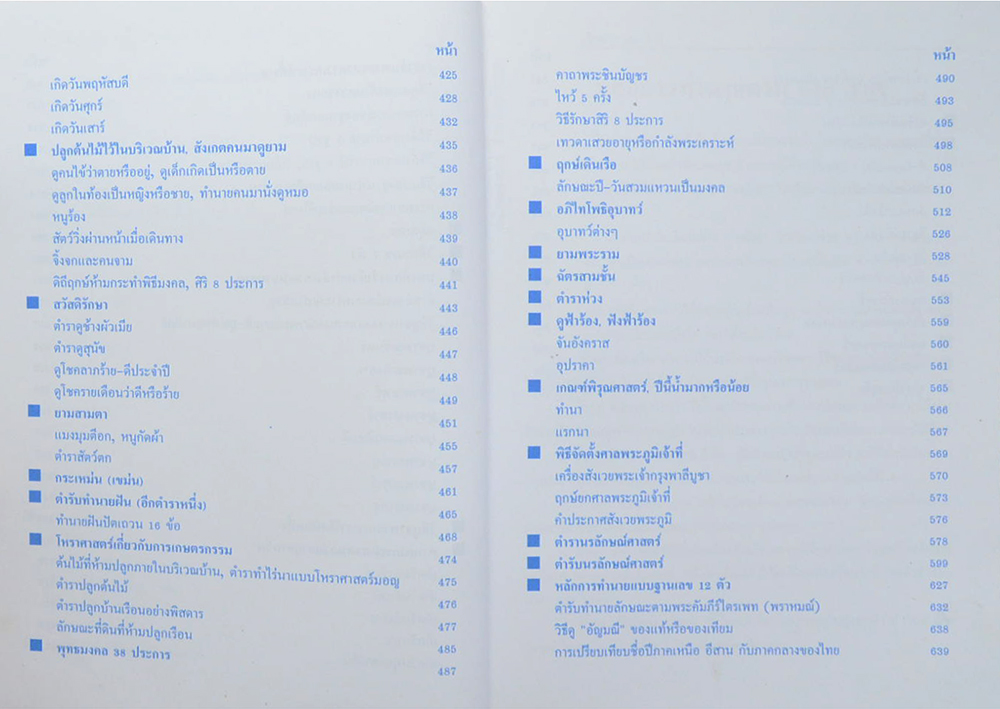 หน้า
เกิดวันพฤหัสบดี 425
เกิดวันศุกร์ 428
เกิดวันเสาร์ 432
■ ปลูกต้นไม้ไว้ในบริเวณบ้าน, สังเกตคนมาดูยาม 435
ดูคนไข้ว่าตายหรืออยู่, ดูเด็กเกิดเป็นหรือตาย 436
ดูลูกในท้องเป็นหญิงหรือชาย, ทำนายคนมานั่งดูหมอ 437
หนูร้อง 438
สัตว์วิ่งผ่านหน้าเมื่อเดินทาง 439
จิ้งจกและคนจาม 440
ดิถีฤกษ์ห้ามกระทำพิธีมงคล, ศิริ 8 ประการ 441
■ สวัสดิรักษา 443
ตำราดูช้างผัวเมีย 446
ตำราดูสุนัข 447
ดูโชคลาภร้าย-ดีประจำปี 448
ดูโชครายเดือนว่าดีหรือร้าย 449
■ ยามสามตา 451
แมงมุมตีอก, หนูกัดผ้า 455
ตำราสัตว์ตก 457
■ กระเหม่น (เขม่น) 461
■ ตำรับทำนายฝัน (อีกตำราหนึ่ง) 465
ทำนายฝันปัตเถวน 16 ข้อ 468
■ โหราศาสตร์เกี่ยวกับการเกษตรกรรม 474
ต้นไม้ที่ห้ามปลูกภายในบริเวณบ้าน, ตำราทำไร่นาแบบโหราศาสตร์มอญ 475
ตำราปลูกต้นไม้ 476
ตำราปลูกบ้านเรือนอย่างพิสดาร 477
ลักษณะที่ดินที่ห้ามปลูกเรือน 485
■ พุทธมงคล 38 ประการ 487
หน้า
คาถาพระชินบัญชร 490
ไหว้ 5 ครั้ง 493
วิธีรักษาสิริ 8 ประการ 495
เทวดาเสวยอายุหรือกำลังพระเคราะห์ 498
■ ฤกษ์เดินเรือ 508
ลักษณะปี-วันสวมแหวนเป็นมงคล 510
■ อภิไทโพธิอุบาทว์ 512
อุบาทว์ต่างๆ 526
■ ยามพระราม 528
■ ฉัตรสามชั้น 545
■ ตำราห่วง 553
■ ดูฟ้าร้อง, ฟังฟ้าร้อง 559
จันอังคราส 560
อุปราคา 561
■ เกณฑ์พิรุณศาสตร์, ปีนี้น้ำมากหรือน้อย 565
ทำนา 566
แรกนา 567
■ พิธีจัดตั้งศาลพระภูมิเจ้าที่ 569
เครื่องสังเวยพระเจ้ากรุงพาลีบูชา 570
ฤกษ์ยกศาลพระภูมิเจ้าที่ 573
คำประกาศสังเวยพระภูมิ 576
■ ตำรานรลักษณ์ศาสตร์ 578
■ ตำรับนรลักษณ์ศาสตร์ 599
■ หลักการทำนายแบบฐานเลข 12 ตัว 627
ตำรับทำนายลักษณะตามพระคัมภีร์ไตรเพท (พราหมณ์) 632
วิธีดู "อัญมณี" ของแท้หรือของเทียม 638
การเปรียบเทียบชื่อปีภาคเหนือ อีสาน กับภาคกลางของไทย 639